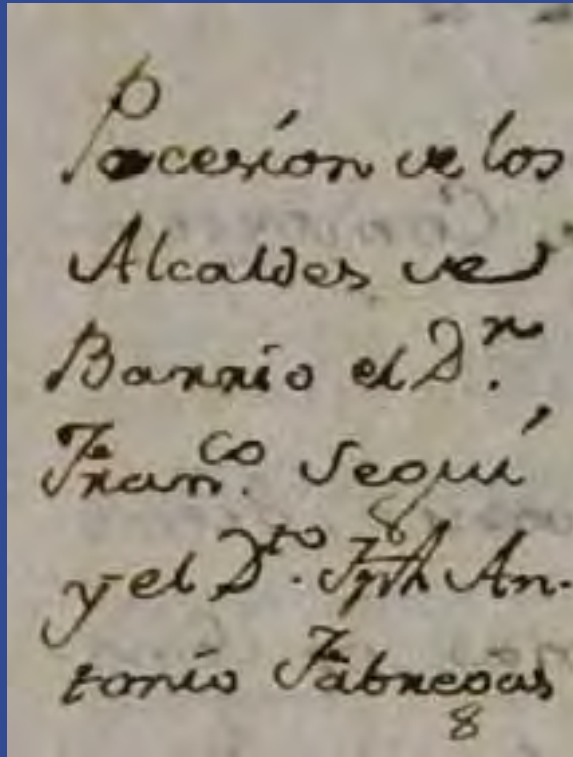 Pocesíon de los
Alcaldes de
Barrio el D.ⁿ
Fran.ᶜᵒ Seguí
y el D.ᵗᵒ Jph An-
tonio Fabregas
8